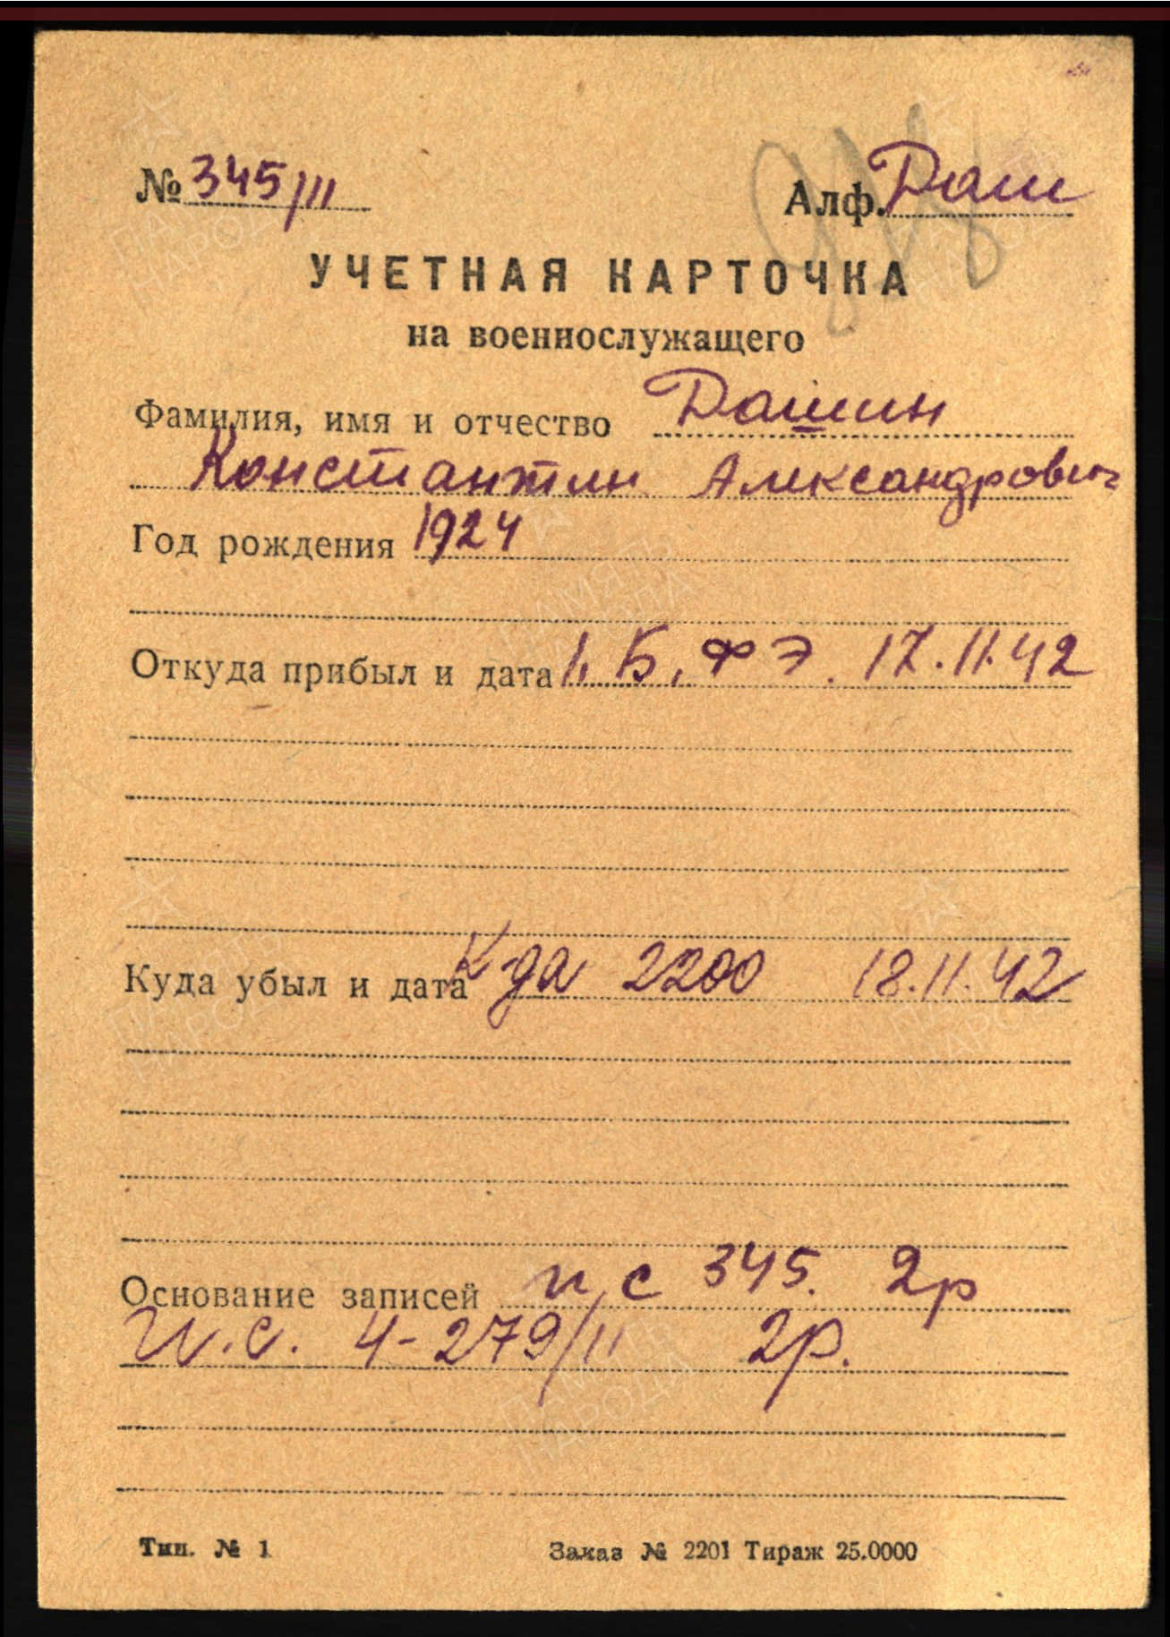 № 345/II Алф. Даш
УЧЕТНАЯ КАРТОЧКА
на военнослужащего
Фамилия, имя и отчество Дашин
Константин Александрович
Год рождения 1924
Откуда прибыл и дата 1. Б. ФЭ. 17.11.42
Куда убыл и дата К-да 2200 18.11.42
Основание записей и с 345. 2р
И.с. 4-279/11 2р.
Тип. № 1 Заказ № 2201 Тираж 25.0000